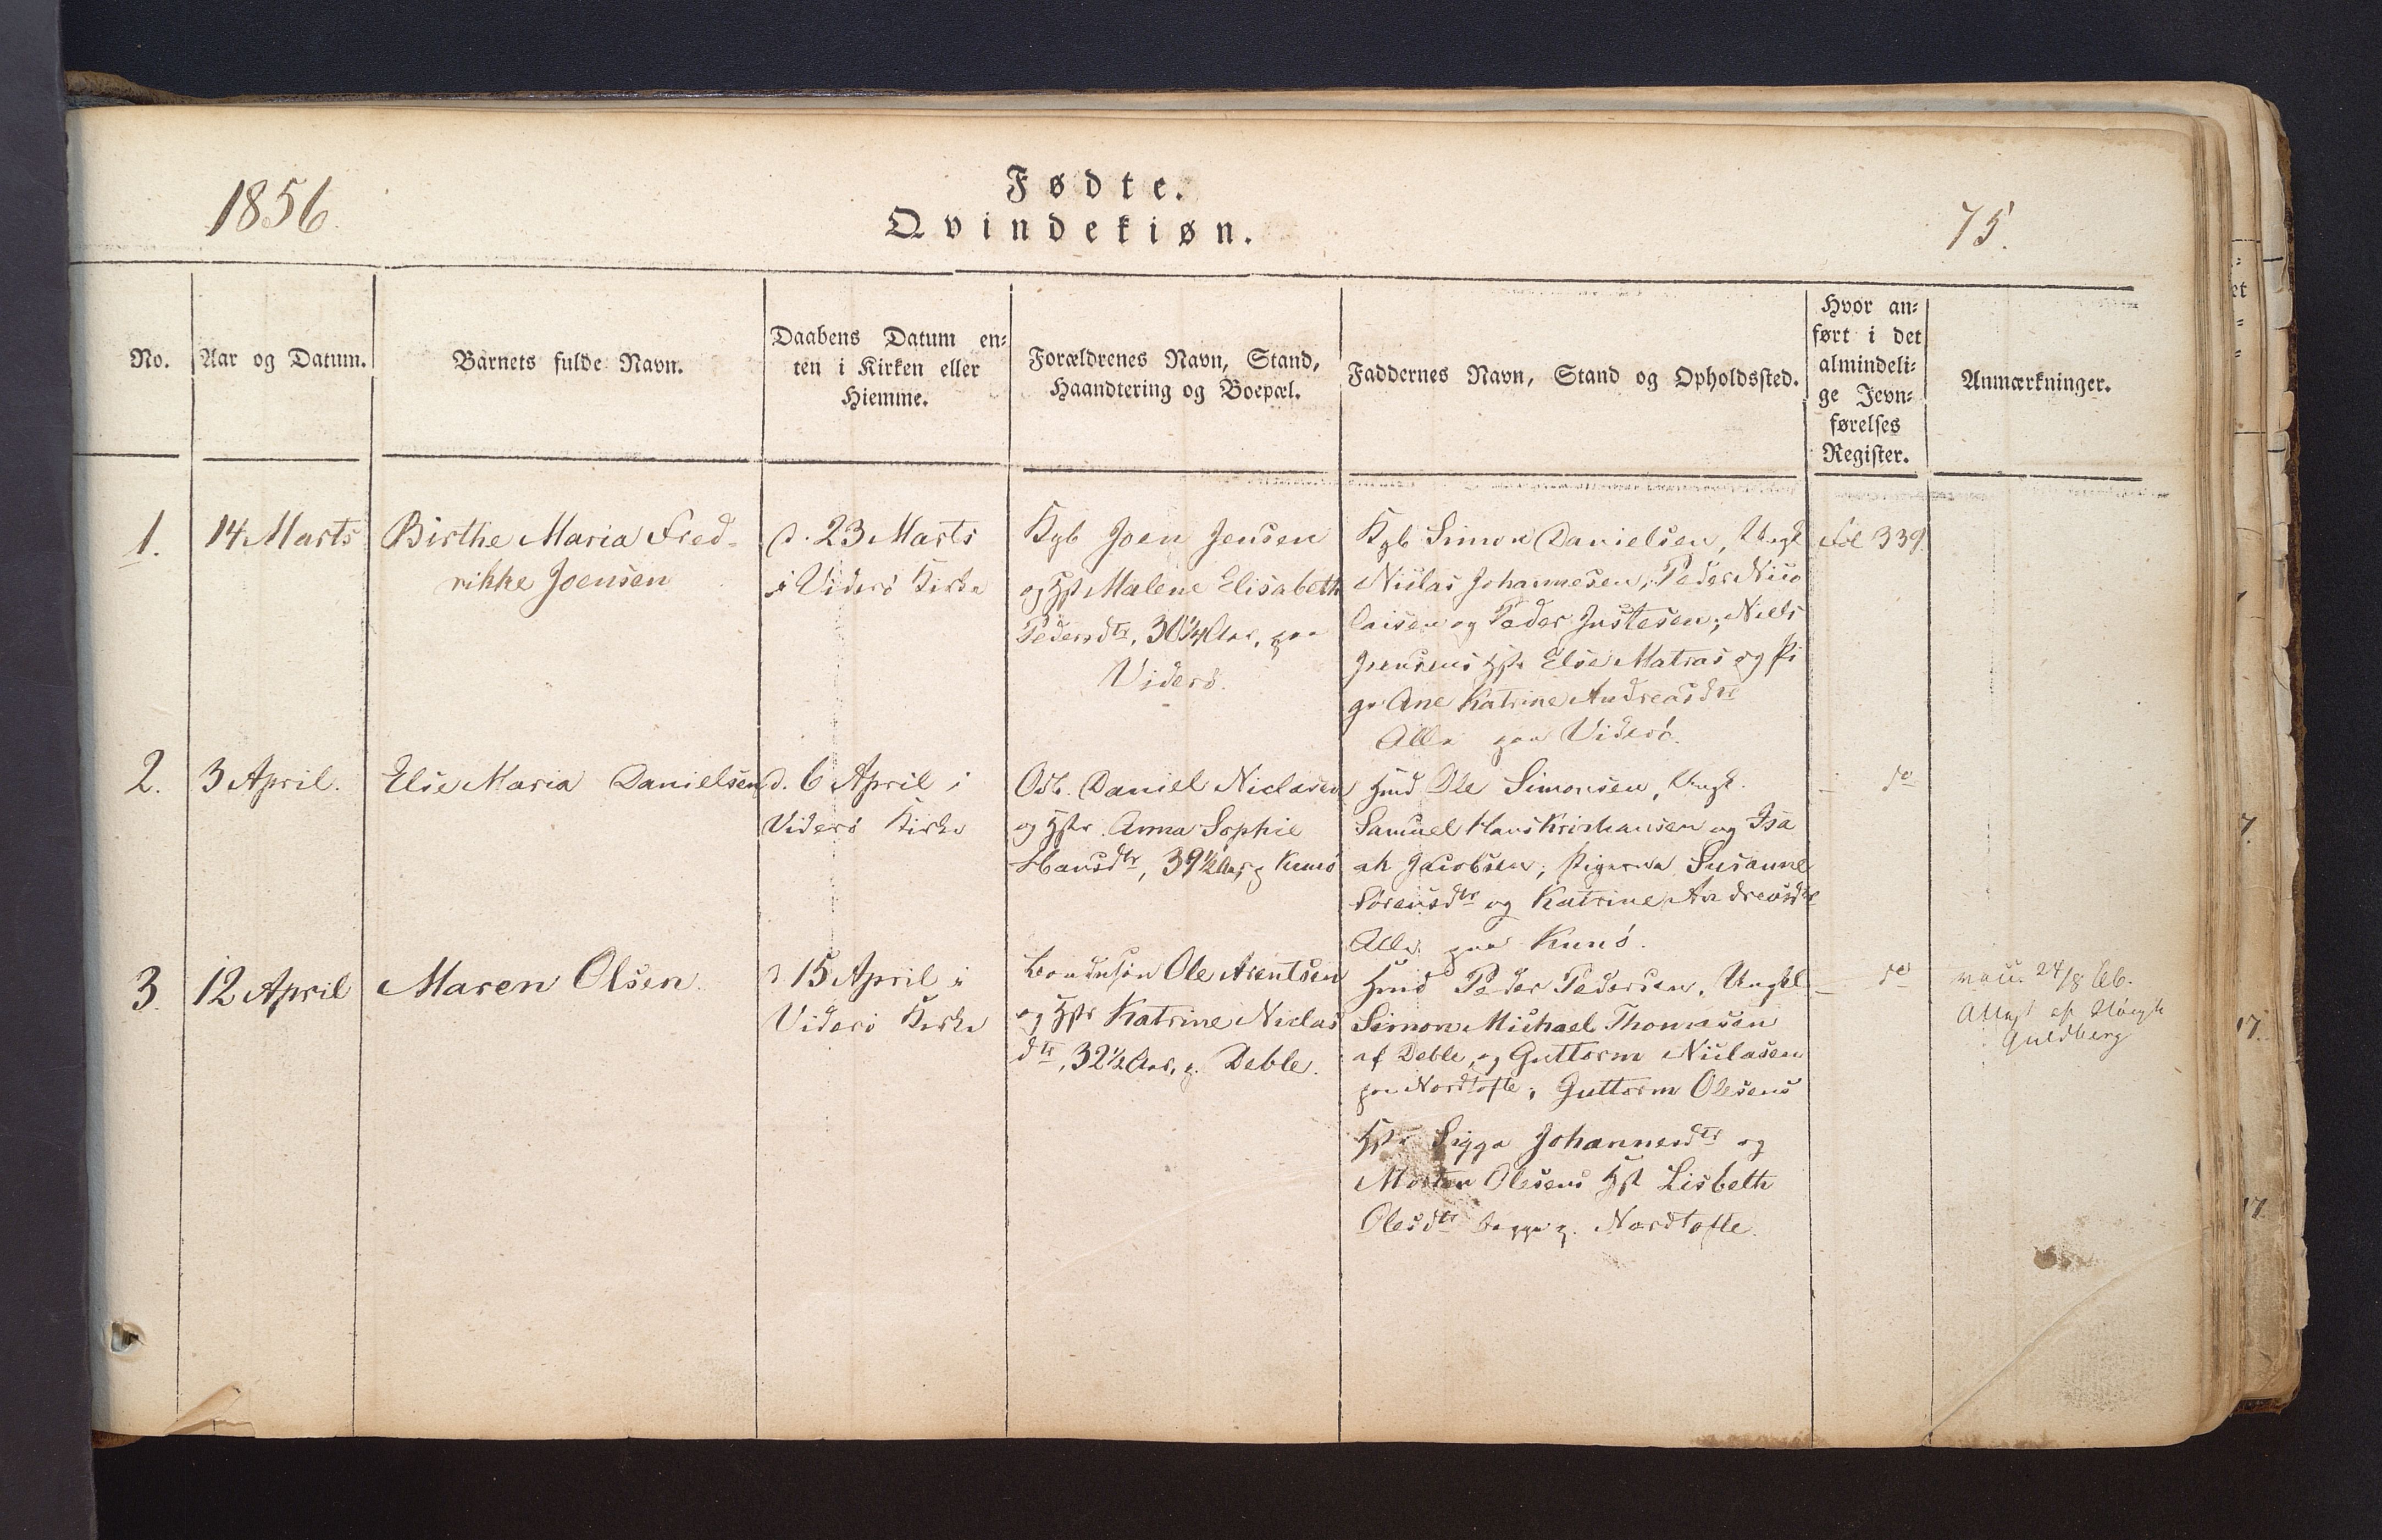 1856.
Fødte.
Qvindekiøn.
75.
No.
Aar og Datum.
Barnets fulde Navn.
Daabens Datum en-
ten i Kirken eller
Hiemme.
Forældrenes Navn, Stand,
Haandtering og Boepæl.
Faddernes Navn, Stand og Opholdssted.
Hvor an-
ført i det
almindeli-
ge Jevn-
førelses
Register.
Anmærkninger.
1.
14 Marts
Birthe Maria Fred-
rikke Joensen
d. 23 Marts
i Viderö Kirke
Kgb Joen Jensen
og Hst Malene Elisabeth
Pedersdtr, 30¼ Aar, paa
Viderö.
Kgb Simon Danielsen, Ungk
Niclas Johannesen, Peder Nico
laisen og Peder Justesen; Niels
Joensens Hstr Else Matras og Pi
ge Ane Katrine Andreasdtr
Alle paa Viderö.
Fol 339.
2.
3 April.
Else Maria Danielsen
d. 6 April i
Viderö Kirke
Odb. Daniel Niclasen
og Hstr. Anna Sophie
Hansdtr, 39½ Aar, p Kunö
Hmd Ole Simonsen, Ungk.
Samuel Hans Kristiansen og Isa
ak Jacobsen; Pigerne Susanne
Sörensdtr og Katrine Andreasdtr
Alle paa Kunö.
– do
3.
12 April
Maren Olsen.
d 15 April i
Viderö Kirke
Bondesön Ole Arentsen
og Hstr Katrine Niclas
dtr, 32½ Aar, p. Deble.
Hmd Peder Pedersen, Ungkl
Simon Michael Thomasen
af Deble, og Guttorm Niclasen
paa Nordtofte; Guttorm Olesens
Hstr Sigga Johannesdtr og
Morten Olesens Hst Lisbeth
Olesdtr begge p. Nordtofte.
– do
vacc. 24/8
Attest af
Guldberg
17.
17